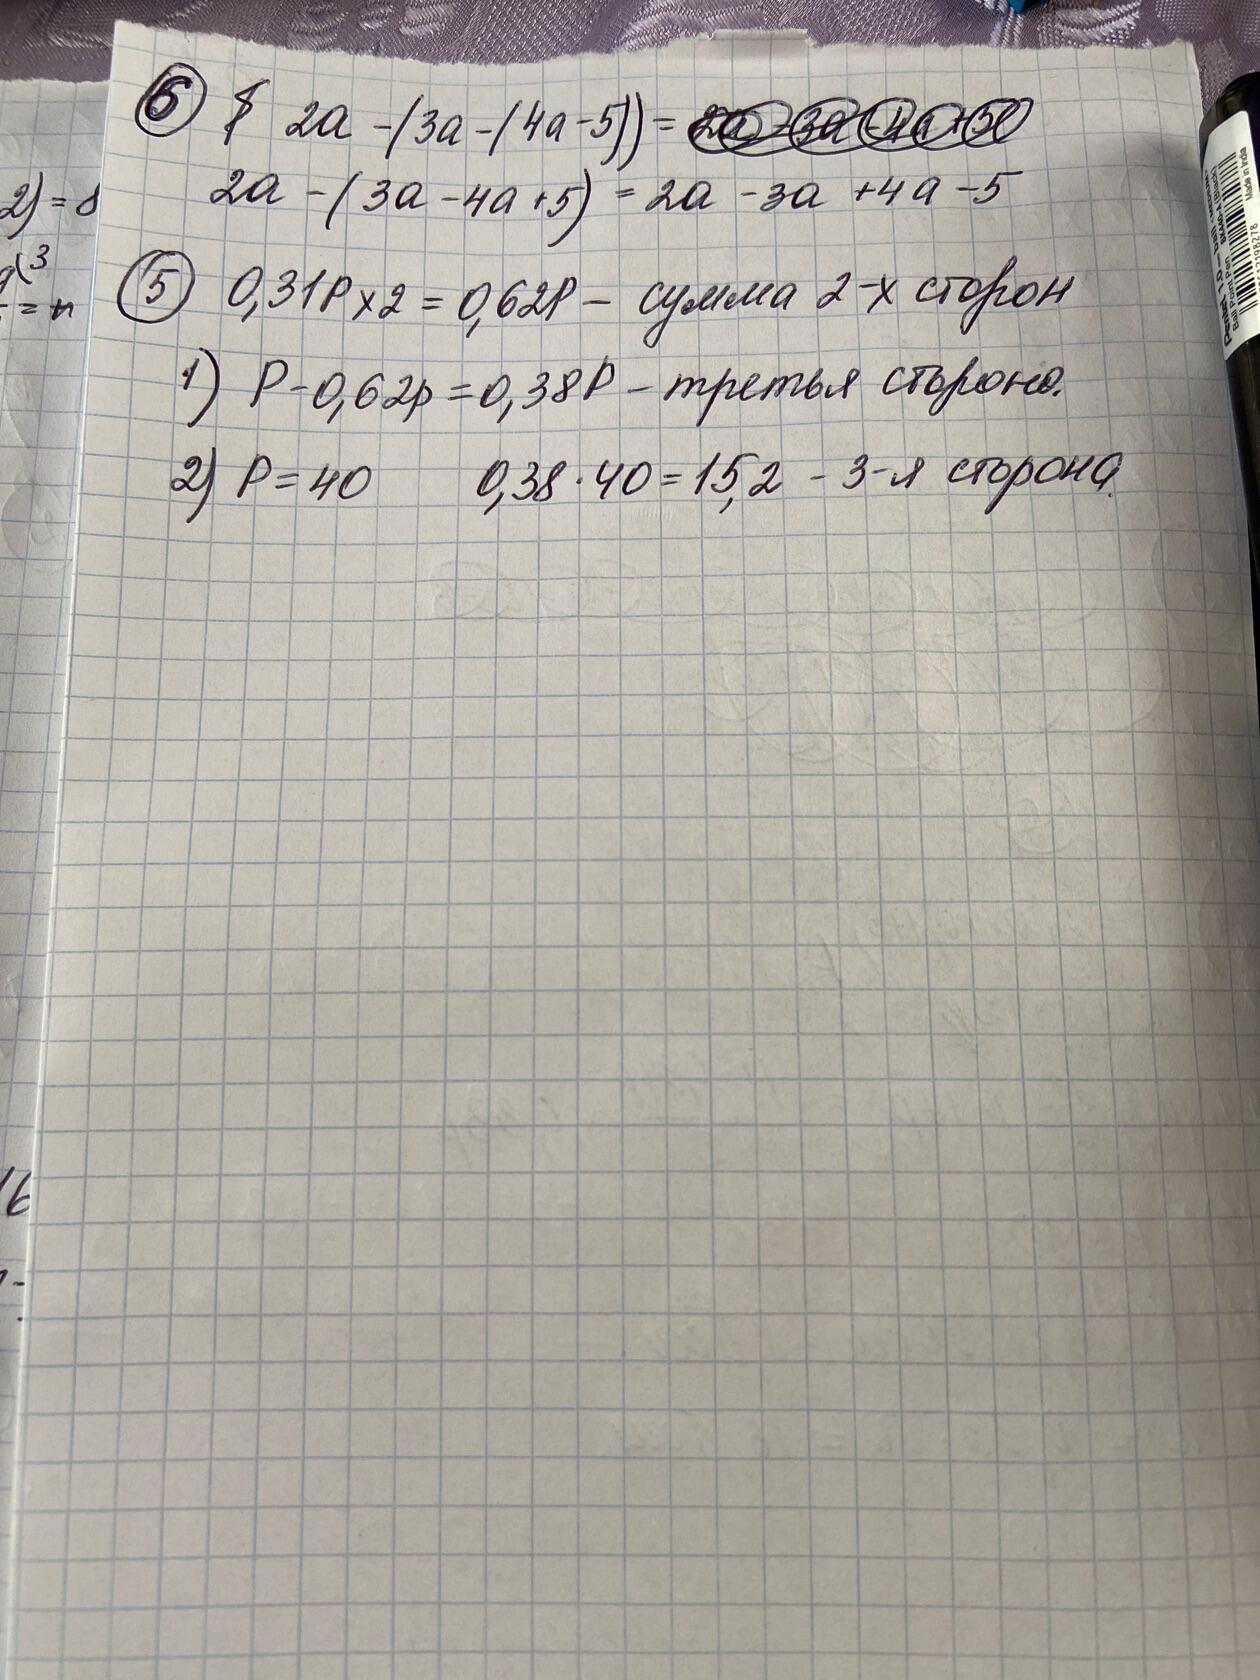 6 2a - (3a - (4a - 5)) =
2a - (3a - 4a + 5) = 2a - 3a + 4a - 5
5 0,31P x 2 = 0,62P - сумма 2-х сторон
1) P - 0,62p = 0,38P - третья сторона.
2) P = 40 0,38 · 40 = 15,2 - 3-я сторона.
2) = 8
3
16
Pentel 1.0
Ball Point Pen